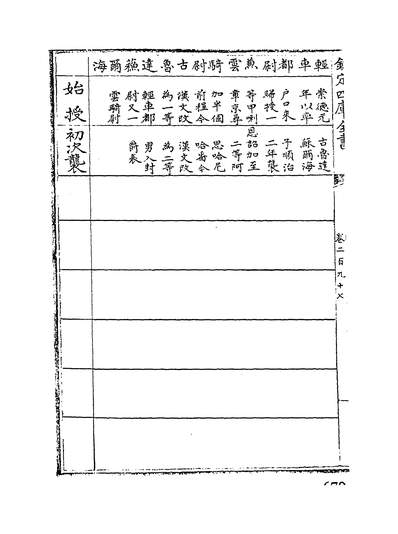 欽定四庫全書
卷二百九十七
輕車都尉兼雲騎尉古魯達蘓爾海
崇德元
年以率
戶口來
歸授一
等甲喇
章京尋
加半個
前程今
漢文改
為一等
輕車都
尉又一
雲騎尉
始授
古魯達
蘇爾海
子順治
二年襲
恩詔加至
二等阿
思哈尼
哈番今
漢文改
為二等
男入封
爵表
初次襲